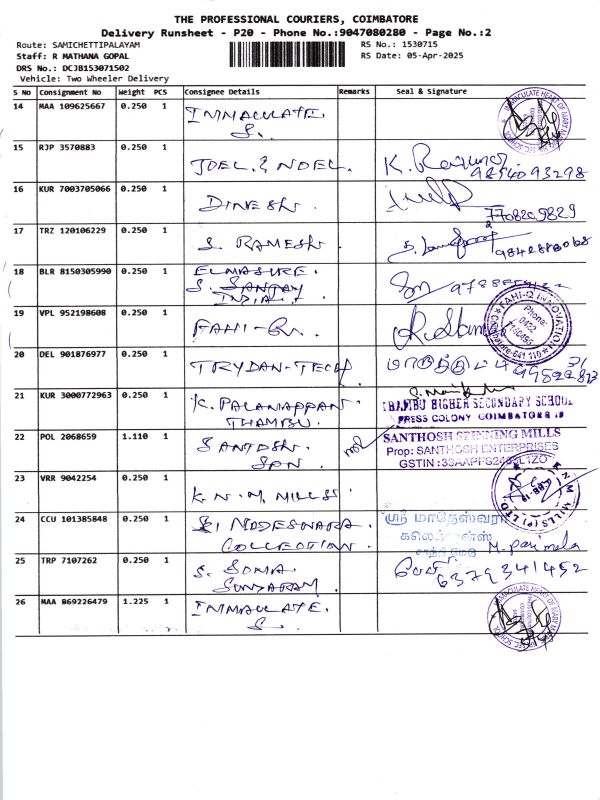 THE PROFESSIONAL COURIERS, COIMBATORE
Delivery Runsheet - P20 - Phone No.:9047080280 - Page No.:2
Route: SAMICHETTIPALAYAM RS No.: 1530715
Staff: R MATHANA GOPAL RS Date: 05-Apr-2025
DRS No.: DCJB153071502
Vehicle: Two Wheeler Delivery
S No Consignment No Weight PCS Consignee Details Remarks Seal & Signature
14 MAA 109625667 0.250 1 IMMACULATE
S.
15 RJP 3570883 0.250 1 JOEL & NOEL.
9894093298
16 KUR 7003705066 0.250 1 DINESH.
7708209829
17 TRZ 120106229 0.250 1 S. RAMESH.
9842888068
18 BLR 8150305990 0.250 1 ELMASURE.
S. SANJAY
INDIA.
19 VPL 952198608 1 FAHI-Q.
FAHI-Q INNOVATION
Phone:
0422
20 DEL 901876977 0.250 1 TRYDAN-TECH
21 KUR 3000772963 0.250 1 K. PALANAPPAN
THAMBU.
THAMBU HIGHER SECONDARY SCHOOL
PRESS COLONY COIMBATORE 19
22 POL 2068659 1.110 1 SANTOSH.
SPN.
SANTHOSH SPINNING MILLS
Prop: SANTHOSH ENTERPRISES
23 VRR 9042254 0.250 1 K. N. M. MILLS.
24 CCU 101385848 0.250 1 SRI MADESWARA
COLLECTION.
ஸ்ரீ மாதேஸ்வரா
கலெக்ஷன்ஸ்
M. Parimala
25 TRP 7107262 0.250 1 S. SOMA
SUNDARAM.
6379341452
26 MAA 869226479 1.225 1 IMMACULATE.
S.